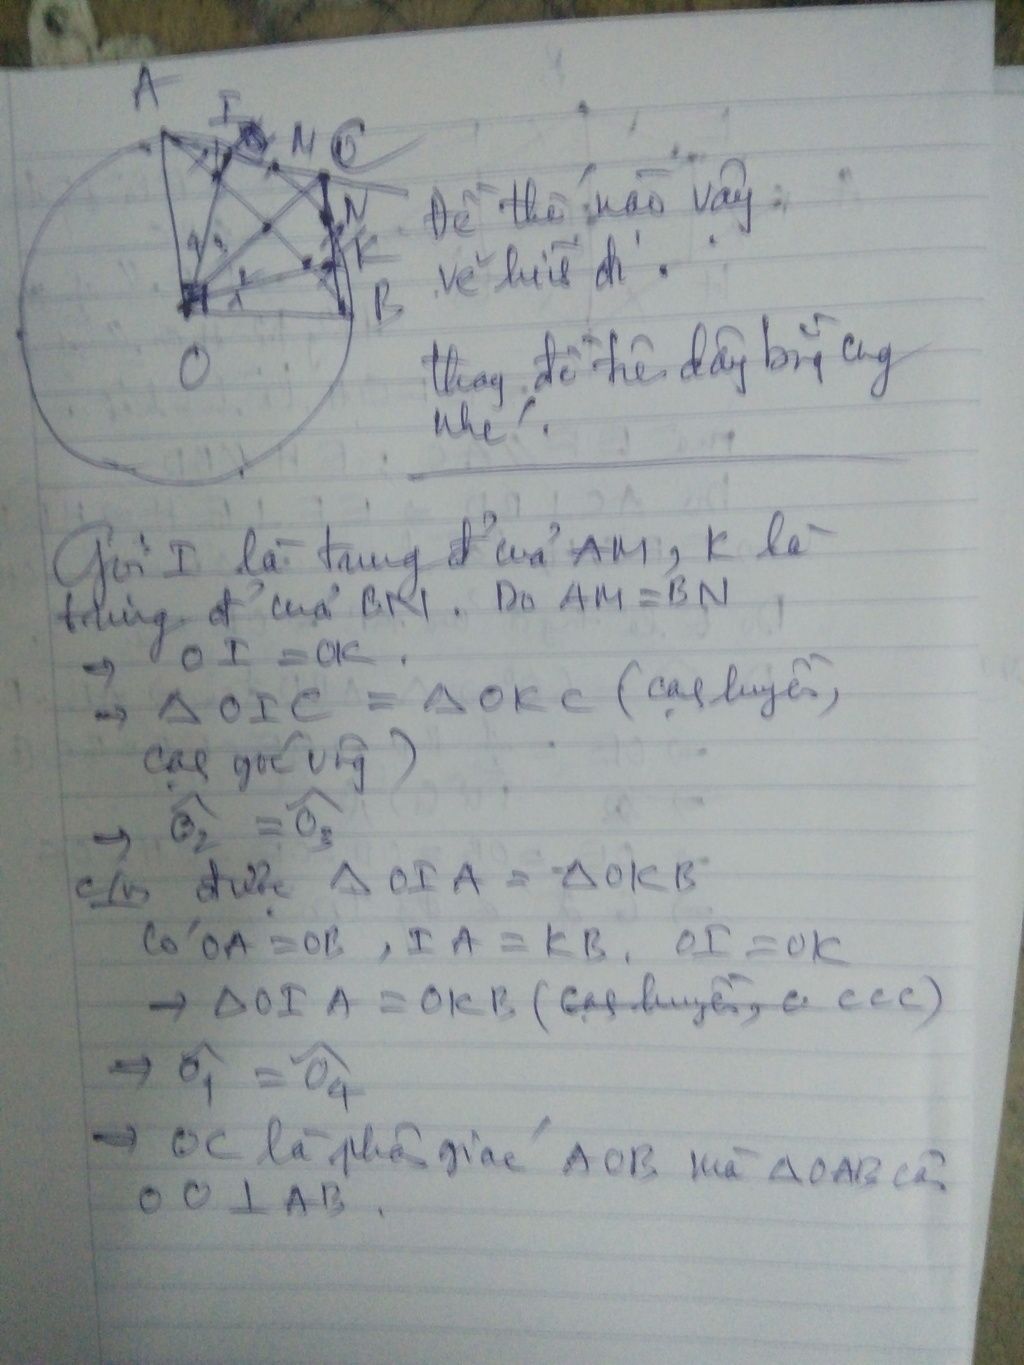 A
I
M C
N
K
B
O
Đề thế nào vậy
vẽ hình đi.
thay đổi dây bằng cung
nhé!
Gọi I là trung đ' của AM, K là
trung đ' của BN. Do AM = BN
→ OI = OK.
→ △OIC = △OKC (cạnh huyền,
cạnh góc vuông)
→ Ô2 = Ô3
c/m được △OIA = △OKB
Có OA = OB, IA = KB, OI = OK
→ △OIA = OKB (cạnh huyền, c CCC)
→ Ô1 = Ô4
→ OC là phân giác AOB mà △OAB cân
OC ⊥ AB.